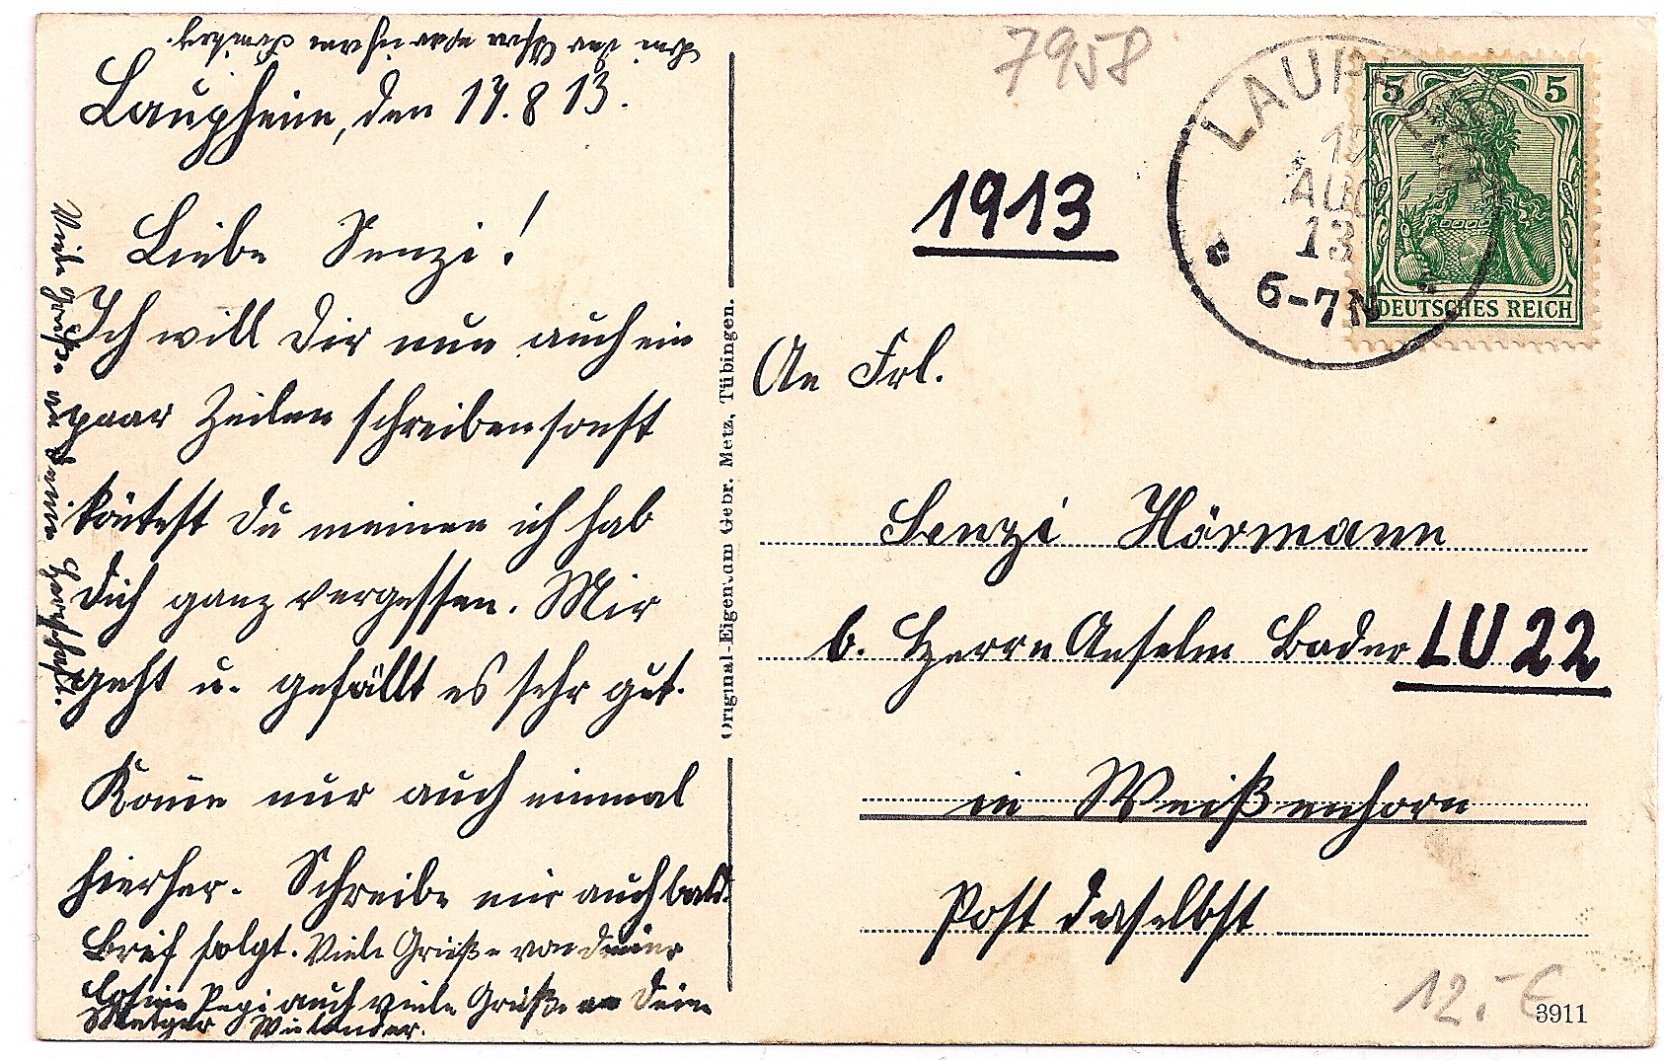 Laupheim, den 17.8 13.
Liebe Senzi!
Ich will dir nun auch ein
paar Zeilen schreiben sonst
köntest du meinen ich hab
dich ganz vergessen. Mir
geht u. gefällt es sehr gut.
Kom̄e nur auch einmal
hierher. Schreibe mir auch bald.
Brief folgt. Viele Grüße von deiner
Cosine Pepi auch viele Grüße an deine
Viele Grüße an deine Herrschaft.
Original-Eigentum Gebr. Metz, Tübingen.
7958
1913
LAUPHEIM
17
AUG
13
6-7N
5 5
DEUTSCHES REICH
An Frl.
Senzi Hörmann
b. Herrn Anselm Bader
LU 22
in Weißenhorn
Post daselbst
12.- €
3911